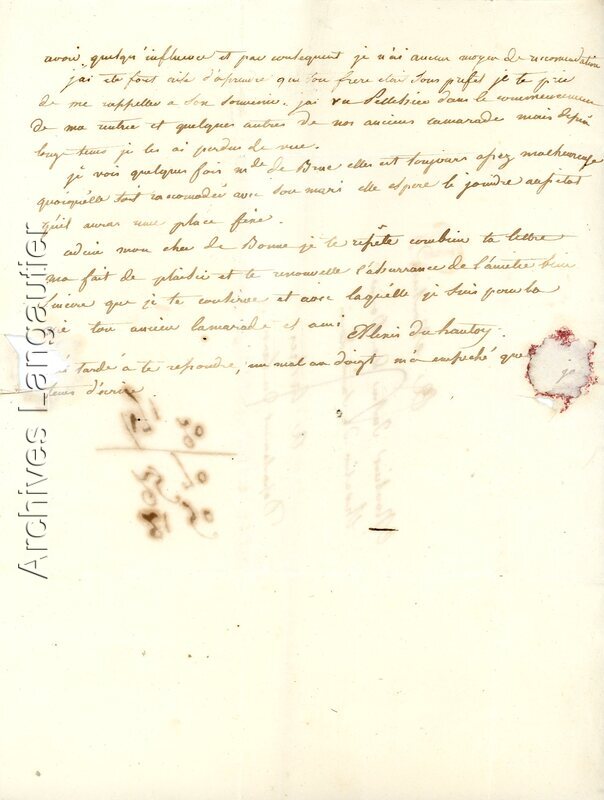 avoir quelqu'influence et par consequent je n'ai aucun moyen de recomendation
j'ai eté fort aise d'aprendre que ton frere etai sous prefet je te prie
de me rappeller a son souvenir. j'ai vu dans le commencement
de ma entrée et quelques autres de nos anciens camarade mais depuis
longtems je les ai perdus de vue.
je vois quelques fois mde de Brue elle est toujours assez malheureuse
quoiquelle soit racomodée avec son mari elle espere le joindre
qu'il auras une place fixe.
adieu mon cher de Bonne je te répéte combien ta lettre
ma fait de plaisir et te renouvelle l'assurance de l'amitié bien
sincere que je te conserve et avec laquélle je suis pour la
vie ton ancien camarade et ami Alexis du hautoy.
tardé à te repondre, un mal au doigt m'a empeché quelque
tems d'écrire
Archives Langautier